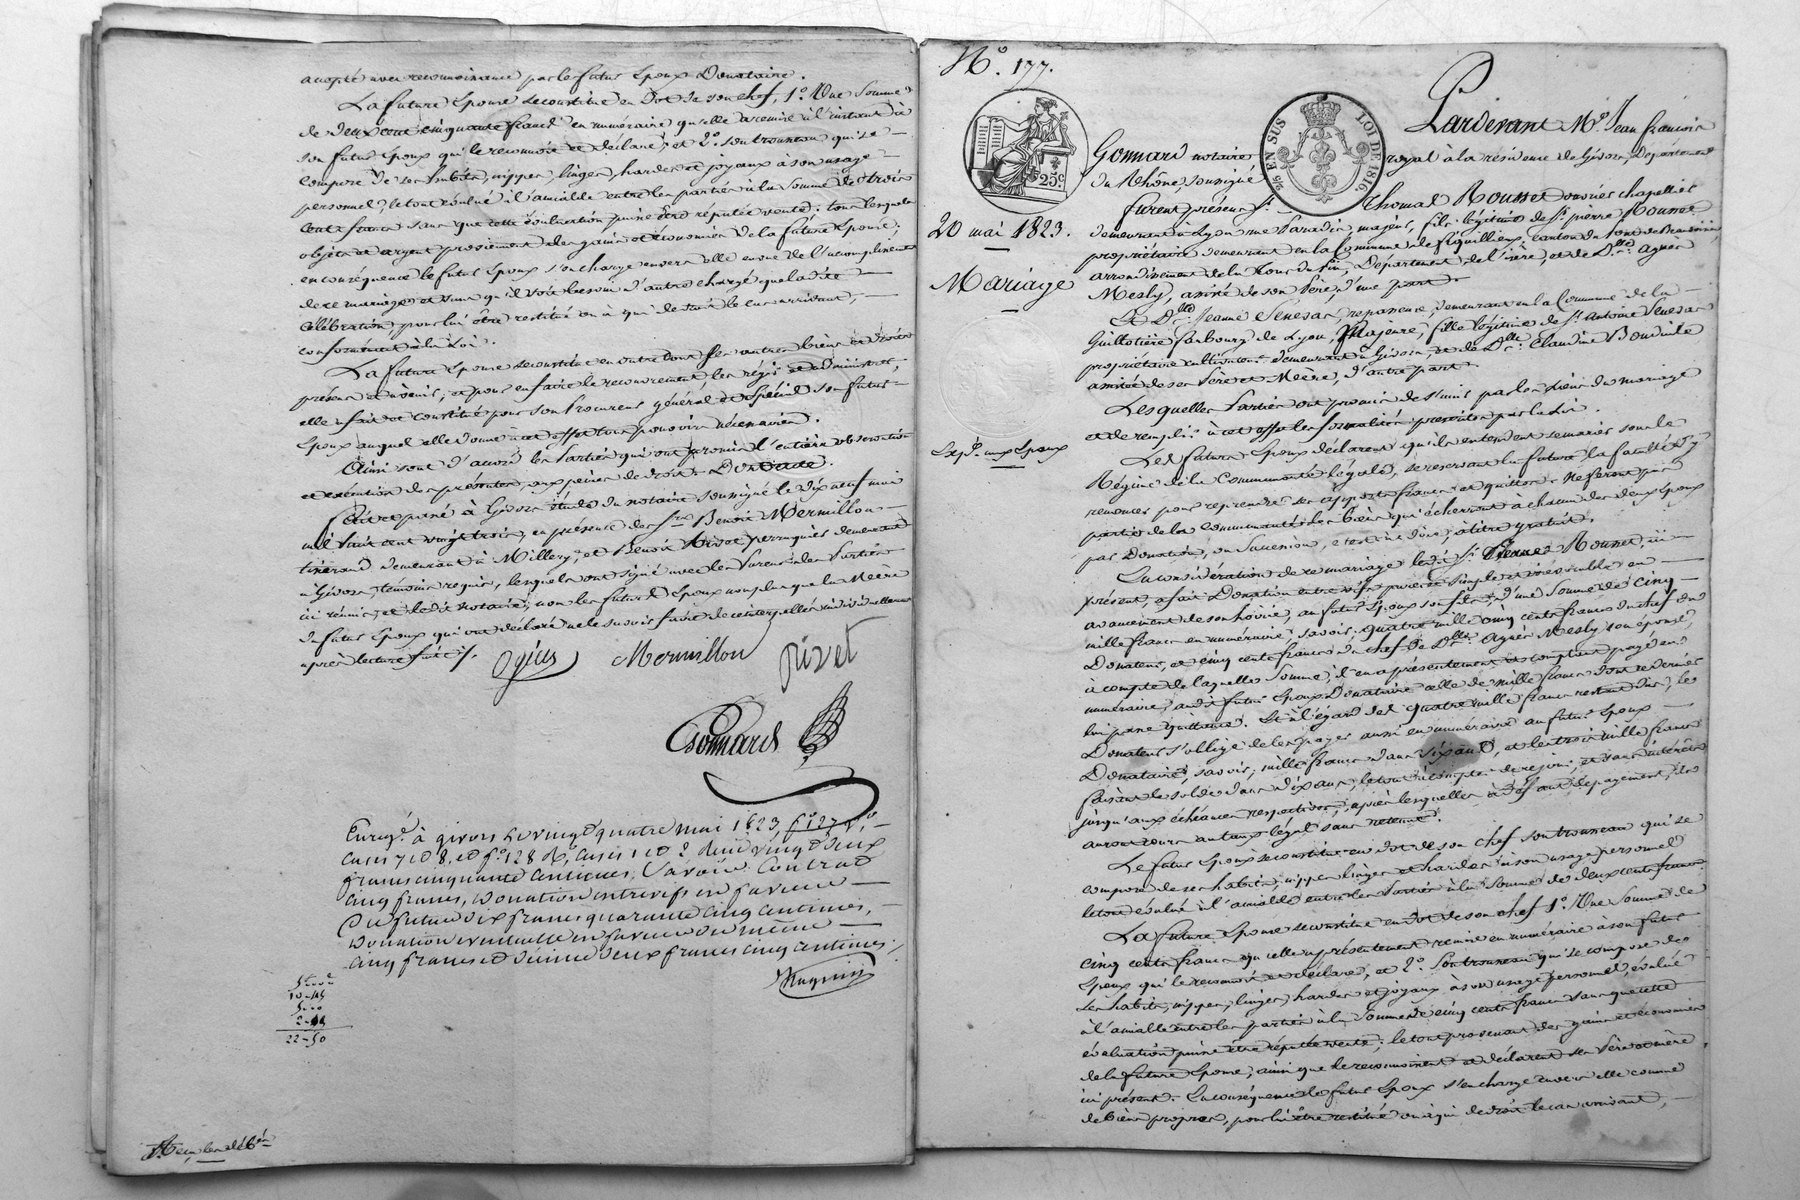 accepté avec reconnaissance par le futur Epoux Donataire.
La future Epouse se constitue en dot de son chef, 1º Une Somme
de deux cent cinquante francs en numéraire qu'elle a remise à l'instant à
son futur Epoux qui le reconnoit et déclare; et 2º son trousseau qui se
compose de ses habits, nippes, linges, hardes et joyaux à son usage
personnel, le tout évalué à l'amiable entre les parties à la Somme de trois
cents francs sans que cette évaluation puisse être réputée vente; tous lesquels
objets et argent proviennent des gains et économies de la future Epouse;
en conséquence le futur Epoux s'en charge envers elle en vue de l'accomplissement
de ce mariage et sans qu'il soit besoin d'autre charge que la dite
célébration, pour lui être restitué ou à qui de droit le cas arrivant,
conformément à la Loi.
La future Epouse se constitue en outre tous ses autres biens et droits
présens et à venir; et pour en faire le recouvrement, les régir et administrer,
elle a fait et constitué pour son Procureur général et spécial son futur
Epoux auquel elle donne à cet effet tous pouvoirs nécessaires.
Ainsi sont d'accord les Parties qui ont promis l'entière observation
et exécution des présentes, aux peines de droit. Dont acte.
Fait et passé à Givors étude du notaire soussigné le dix neuf mai
mil huit cent vingt trois, en présence des Srs Benoit Mermillon
demeurant à Millery, et Benoit Pivot perruquier demeurant
à Givors, témoins requis, lesquels ont signé avec les
ici réunis, et le dit notaire; non les futurs Epoux non plus que la Mère
du futur Epoux qui ont déclaré ne le savoir faire de ce interpellés individuellement
après lecture faite.
Mermillon
pivot
Gonnard
Enregé à givors le vingt quatre mai 1823, fº 127 Vº
cases 7 et 8, et fº 128 Rº, cases 1 et 2 Reçu vingt deux
francs cinquante centimes, Savoir: Contrat
cinq francs, Donation entrevifs en faveur
Du futur dix francs quarante cinq centimes,
Donation en faveur du même
cinq francs et dixième deux francs cinq centimes
5-00
10-45
5-00
2-05
22-50
Nº. 177.
25c
2/5 EN SUS
LOI DE 1816.
20 mai 1823.
Mariage
Expé. aux Epoux
Pardevant Me Jean françois
Gonnard notaire royal à la résidence de Givors, Département
du Rhône, soussigné
furent présens Sr. Thomas Rousset ouvrier chapellier
demeurant à Lyon rue Paradis majeur, fils légitime de Sr. pierre Rousset
propriétaire demeurant en la Commune de canton du Pont de Beauvoisin,
arrondissement de la Tour du Pin, Département de l'Isère et de Dlle. Agnès
Mesly, assisté de son Père, d'une part.
Et Dlle Jeanne Senezar, repasseuse, demeurant en la Commune de la
Guillotière faubourg de Lyon, Majeure, fille légitime de Sr. Antoine Senezar
propriétaire cultivateur demeurant à Givors, et de Dlle. Claudine
assistée de ses Père et Mère, d'autre part.
Lesquelles Parties ont promis de s'unir par les Liens du mariage
et de remplir à cet effet les formalités prescrites par la Loi.
Les futurs Epoux déclarent qu'ils entendent se marier sous le
Régime de la Communauté légale, se réservant la future la faculté d'y
renoncer pour reprendre ses apports francs et quittes. Ne feront pas
partie de la communauté les biens qui écherront à chacun des deux Epoux
par Donation, ou Succession, c'est à dire, à titre gratuit.
En considération de ce mariage led. Sr. Pierre Rousset, ici
présent, a fait Donation entre vifs, pure et simple et irrévocable en
avancement de son hoirie, au futur Epoux son fils, d'une Somme de cinq
mille francs en numéraire; savoir; quatre mille cinq cents francs du chef du
Donateur, et cinq cents francs du chef de Dlle. Agnès Mesly son épouse,
à compte de laquelle Somme, il en a présentement et comptant payé en
numéraire, audit futur Epoux Donataire celle de mille francs dont ce dernier
lui passe quittance. Et à l'égard des quatre mille francs restant dus, le
Donateur s'oblige de les payer aussi en numéraire au futur Epoux
Donataire, savoir; mille francs dans six ans, et les trois mille francs
faisant le solde dans dix ans, le tout à compter de ce jour, et sans intérêts
jusqu'aux échéances respectives, après lesquelles à défaut de payement, ils
auront cours au taux légal sans retenue.
Le futur Epoux se constitue en dot de son chef son trousseau qui se
compose de ses habits, nippes linges et hardes à son usage personnel
le tout évalué à l'amiable entre les Parties à la Somme de deux cents francs.
La future Epouse se constitue en dot de son chef 1º. Une Somme de
cinq cents francs qu'elle a présentement remise en numéraire à son futur
Epoux qui le reconnoit et déclare, et 2º. Son trousseau qui se compose de
ses habits, nippes, linges, hardes et joyaux à son usage personnel, évalué
à l'amiable entre les parties à la Somme de cinq cents francs sans que cette
évaluation puisse être réputée vente; le tout provenant des gains et économies
de la future Epouse, ainsi que le reconnoissent et déclarent ses Père et mère
ici présens. En conséquence le futur Epoux s'en charge envers elle comme
de biens propres, pour lui être restitué ou à qui de droit le cas arrivant,